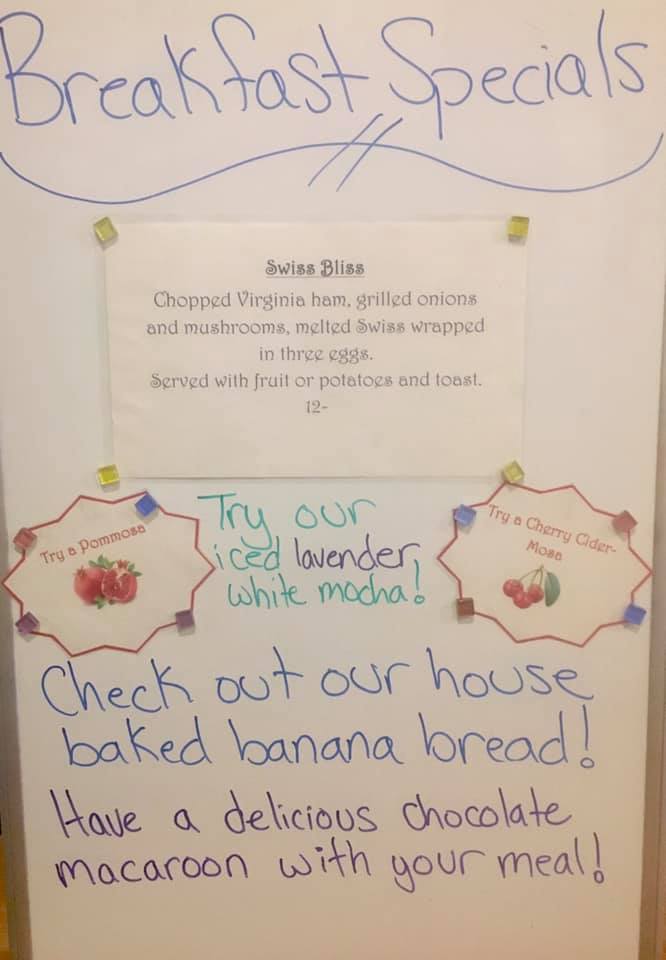 Breakfast Specials
Swiss Bliss
Chopped Virginia ham, grilled onions
and mushrooms, melted Swiss wrapped
in three eggs.
Served with fruit or potatoes and toast.
12-
Try a Pommosa
Try our
iced lavender,
white mocha!
Try a Cherry Cider-
Mosa
Check out our house
baked banana bread!
Have a delicious chocolate
macaroon with your meal!